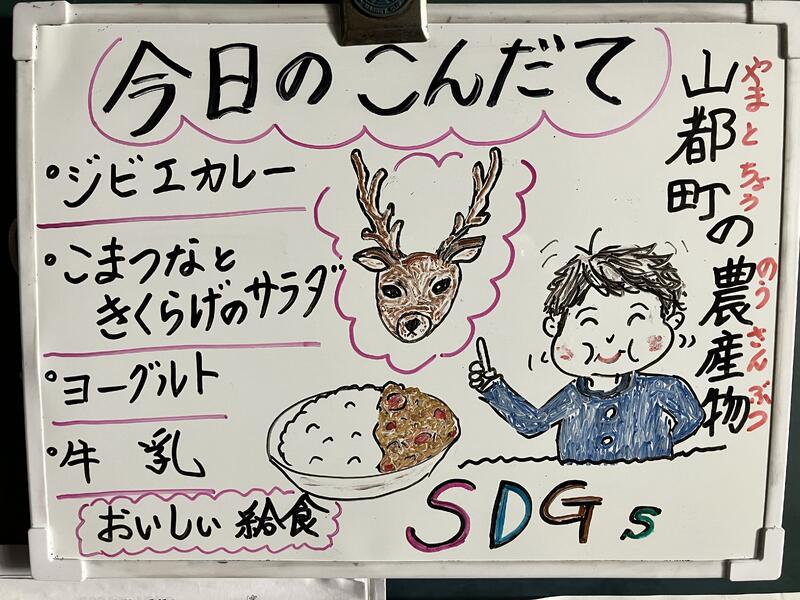 今日のこんだて
山都町の農産物
やまとちょう のうさんぶつ
・ジビエカレー
・こまつなと
きくらげのサラダ
・ヨーグルト
・牛乳
おいしい給食
SDGs